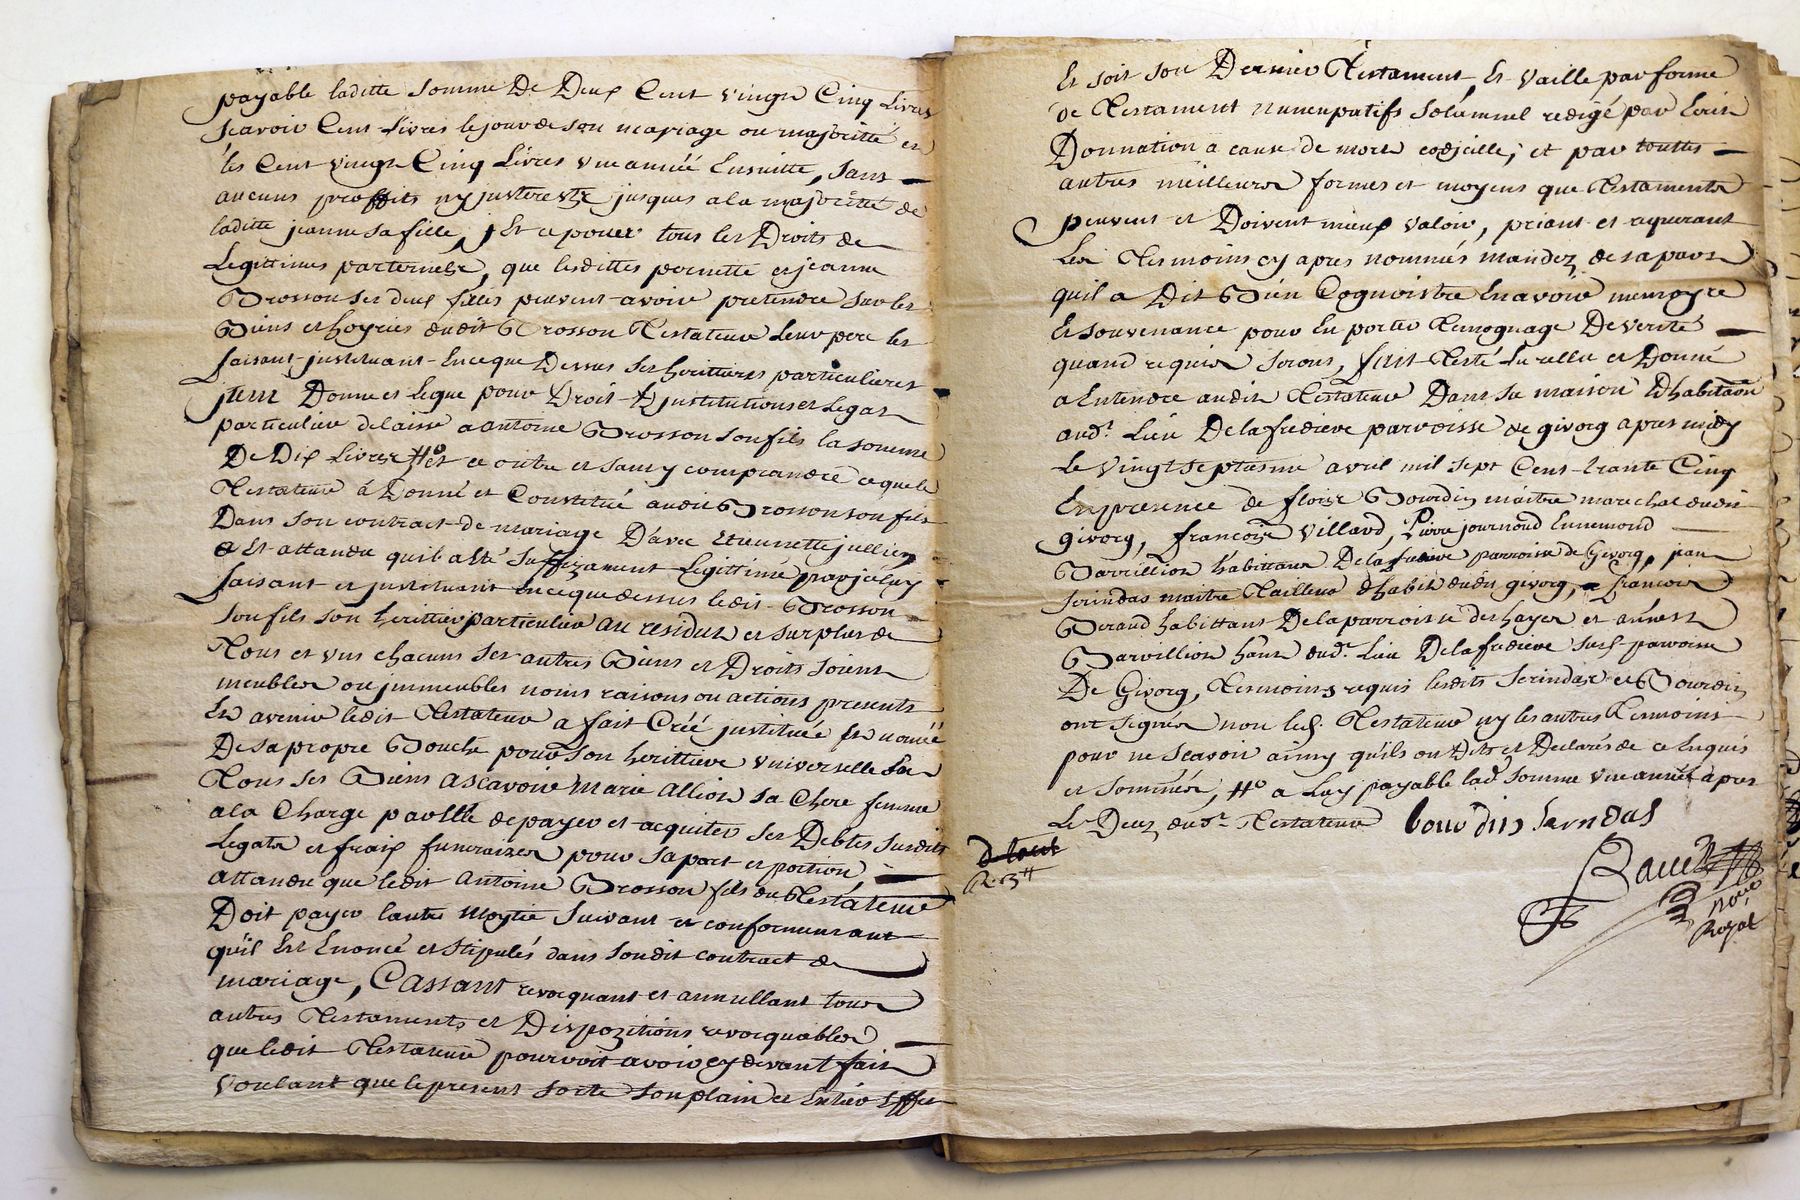 payable laditte somme De Deux Cent vingt Cinq Livres
scavoir Cent Livres le jour de son mariage ou majoritté et
les Cent vingt Cinq Livres une année Ensuitte, sans
aucuns proffits ny jnterestz jusques a la majoritté de
laditte jeanne sa fille, Et ce pour tous les Droits de
Legittimes parternels, que lesdittes pernette et jeanne
Brosson ses deux filles peuvent avoir pretendre sur les
Biens et hoyries dudit Brosson Testateur Leur pere les
faisant jnstituant En ce que Dessus ses herittieres particulieres
jtem Donne et Legue pour Droit Djnstitution et Legat
particulier delaissé a antoine Brosson son fils la somme
De Dix Livres Ho Et ce outre et sans y comprandre ce que le
Testateur á Donné et Constitué audit Brosson son fils
Dans son contract de mariage D'avec Etiennette jullien
Et attandu quil a Esté suffizament Legittimé par jcluy
faisant et jnstituant En ce que dessus ledit Brosson
son fils son herittier particulier au residut et surplus de
Tous et uns chacuns ses autres Biens et Droits soient
meubles ou jmmeubles noms raisons ou actions presents
Et avenir ledit Testateur a fait Créé jnstituée Et nomée
De sa propre Bouche pour son herittiere universelle En
Tous ses Biens ascavoir Marie Allion sa Chere femme
a la Charge par Elle de payer et acquiter ses Debtes susdits
Legats et fraix funeraires pour sa part et portion
attandu que ledit Antoine Brosson fils du Testateur
Doit payer l'autre Moytie suivant et conformemant
qu'il Est Enoncé et stipulés dans son dit contract de
mariage, Cassant revocquant et annullant tous
autres Testaments et Dispozitions revocquables
que ledit Testateur pourroit avoir cy devant fait
Voulant que le present sorte son plain et Entier Effet
Et soit son Dernier Testament, Et vaille par forme
de Testament nuncupatifs solamnel redigé par Ecrit
Donnation a cause de mort codjcille, et par touttes
autres meilleurs formes et moyens que Testaments
peuvent et Doivent mieux valoir, priant et requerant
Les Tesmoins cy apres nommés mandez de sa part
quil a Dit Bien Cognoistre En avoir memoyre
Et souvenance pour En porter Temognage De verité
quand requis seront, fait Testé Lu rellu et Donné
a Entendre audit Testateur Dans sa maison D'habitaôn
aud.t Lieu De la fredieve parroisse de givorg apres midy
Le vingt septiesme avril mil sept Cent trante Cinq
En presence de fleury Bourdin maitre marechal dudit
givorg, françois villard, Pierre journoud Ennemond
Barvillion habittans De la fredieve parroisse de Givorg, jean
serindas maitre Tailleur d'habit dudit givorg, françois
Beraud habittant De la parroisse des hayes et anest
Barvillion habt dud.t Lieu De la fredieve susd. parroisse
De Givorg, Tesmoins requis lesdits serindas et Bourdin
ont signés non led. Testateur ny les autres Temoins
pour ne scavoir ainsy qu'ils ont Dits et Declarés de ce Enquis
et sommés, Ho a Luy payable lad.e somme une année apres
Le Decez dud.t Testateur bourdin sarndas
R. 3
Royal